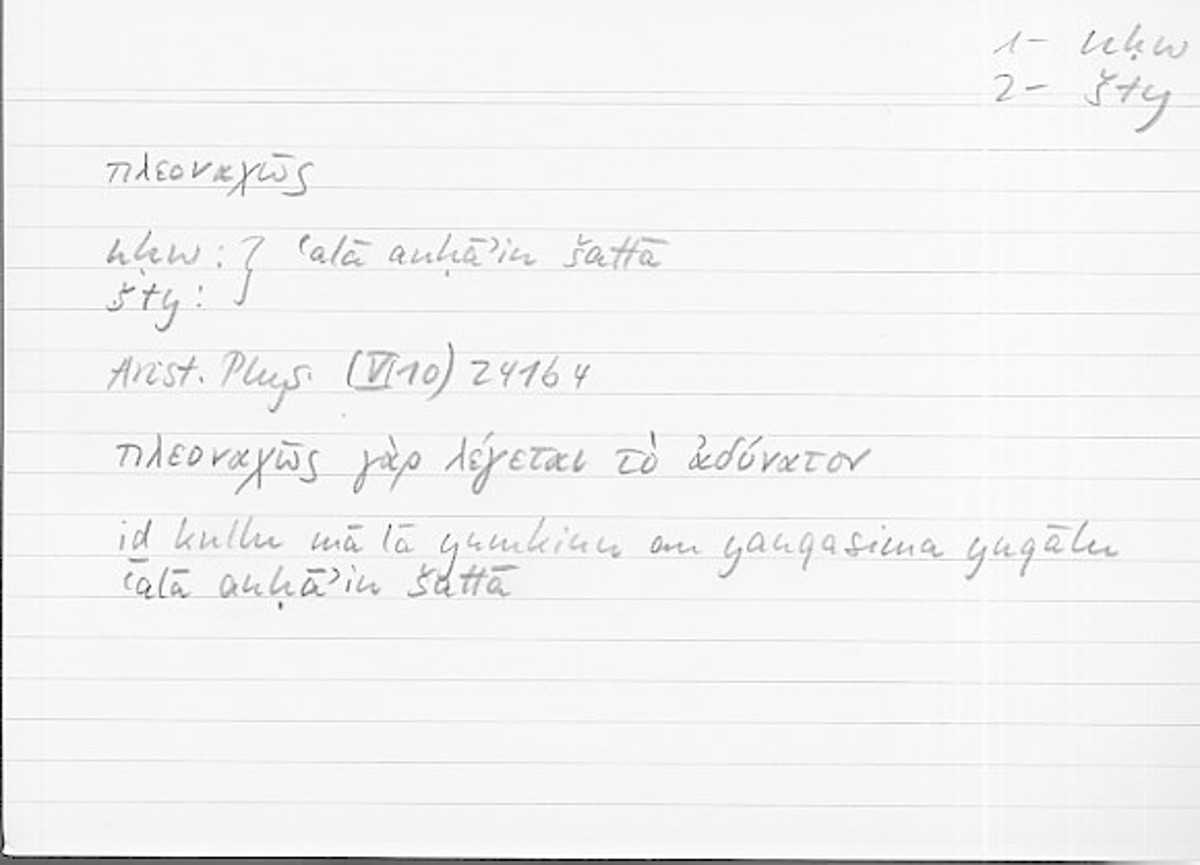 1- nḥw
2- šty
πλεοναχῶς
nḥw : } ʿalā anḥāʾin šattā
šty :
Arist. Phys. (VI 10) 241b4
πλεοναχῶς γὰρ λέγεται τὸ ἀδύνατον
iḏ kullu mā lā yumkinu an yanqasima yuqālu
ʿalā anḥāʾin šattā